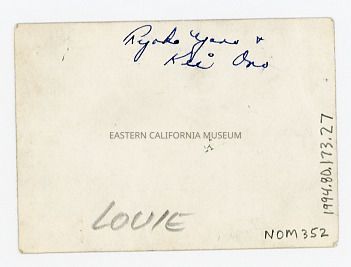 Ryoko Yano +
Kei Ono
EASTERN CALIFORNIA MUSEUM
LOUIE
1994.80.173.27
NOM352